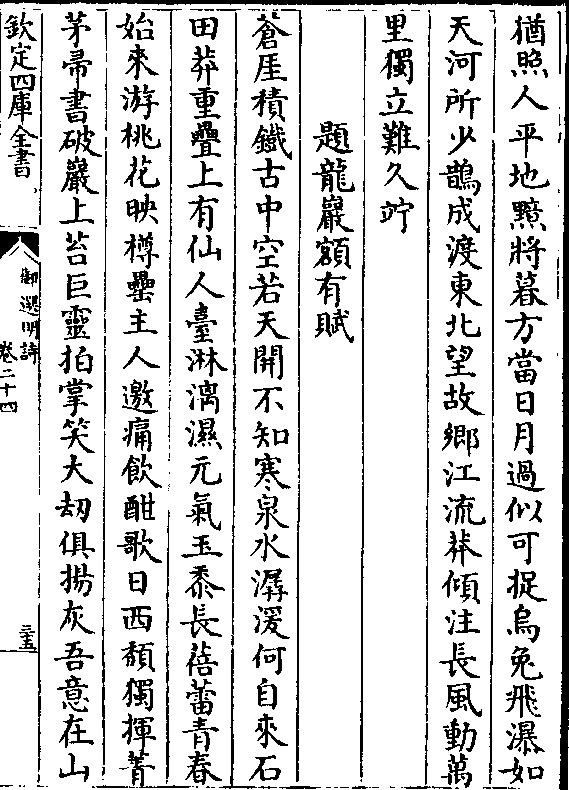 猶照人平地黯將暮方當日月過似可捉烏兔飛瀑如
天河所少鵲成渡東北望故鄉江流莽傾注長風動萬
里獨立難久竚
題龍巖額有賦
蒼厓積鐵古中空若天開不知寒泉水潺湲何自來石
田莽重疊上有仙人臺淋漓濕元氣玉黍長蓓蕾青春
始來游桃花映樽罍主人邀痛飲酣歌日西頹獨揮菁
茅帚書破巖上苔巨靈拍掌笑大劫俱揚灰吾意在山
欽定四庫全書
御選明詩
卷二十四
三五